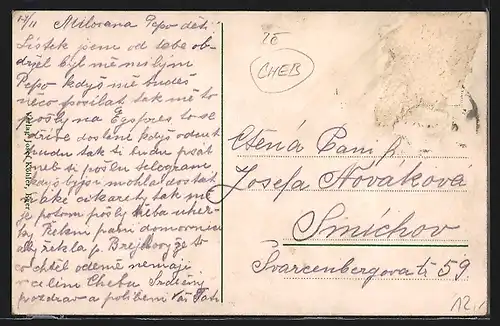 Milovaná Pepo děti
Lístek jsem od tebe ob-
držel byl mě milým
Pepo když mě budeš
něco posílat tak mě to
pošly na Expres to se
dříve dostane když odsud
pudu tak ti budu psát
neb si pošlu telegram
když bys mohla dostat
také cikarety tak mě
je potom pošly třeba uher-
ky Řekni paní domovnici
aby řekla p. Brejchový že to
chtěl odemě nemají
v celém Chebu Srdečný
pozdrav a políbení Váš Táta
ZE
CHEB
Ctěná Paní p.
Josefa Nováková
Smíchov
Švarcenbergova tř 59
12.